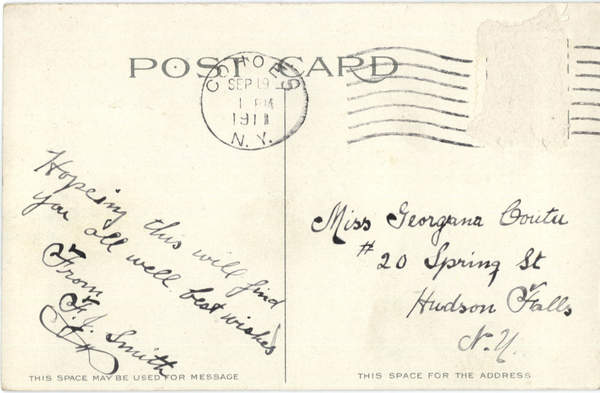 POST CARD
COHOES
SEP 19
1 PM
1911
N.Y.
Hopeing this will find
you all well best wishes
From
F.J. Smith
Miss Georgana
# 20 Spring St
Hudson Falls
N.Y.
THIS SPACE MAY BE USED FOR MESSAGE
THIS SPACE FOR THE ADDRESS